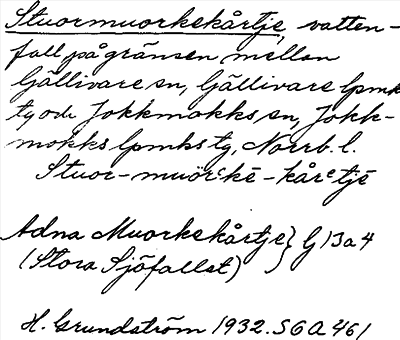 Stuormuorkekårtje, vatten-
fall på gränsen mellan
Gällivare sn, Gällivare lpmks
tg och Jokkmokks sn, Jokk-
mokks lpmks tg, Norrb. l.
Stuor-muörᵋkē-kårᵉtjē
Adna Muorkekårtje } G 13a4
(Stora Sjöfallet)
H. Grundström 1932. SOA 461